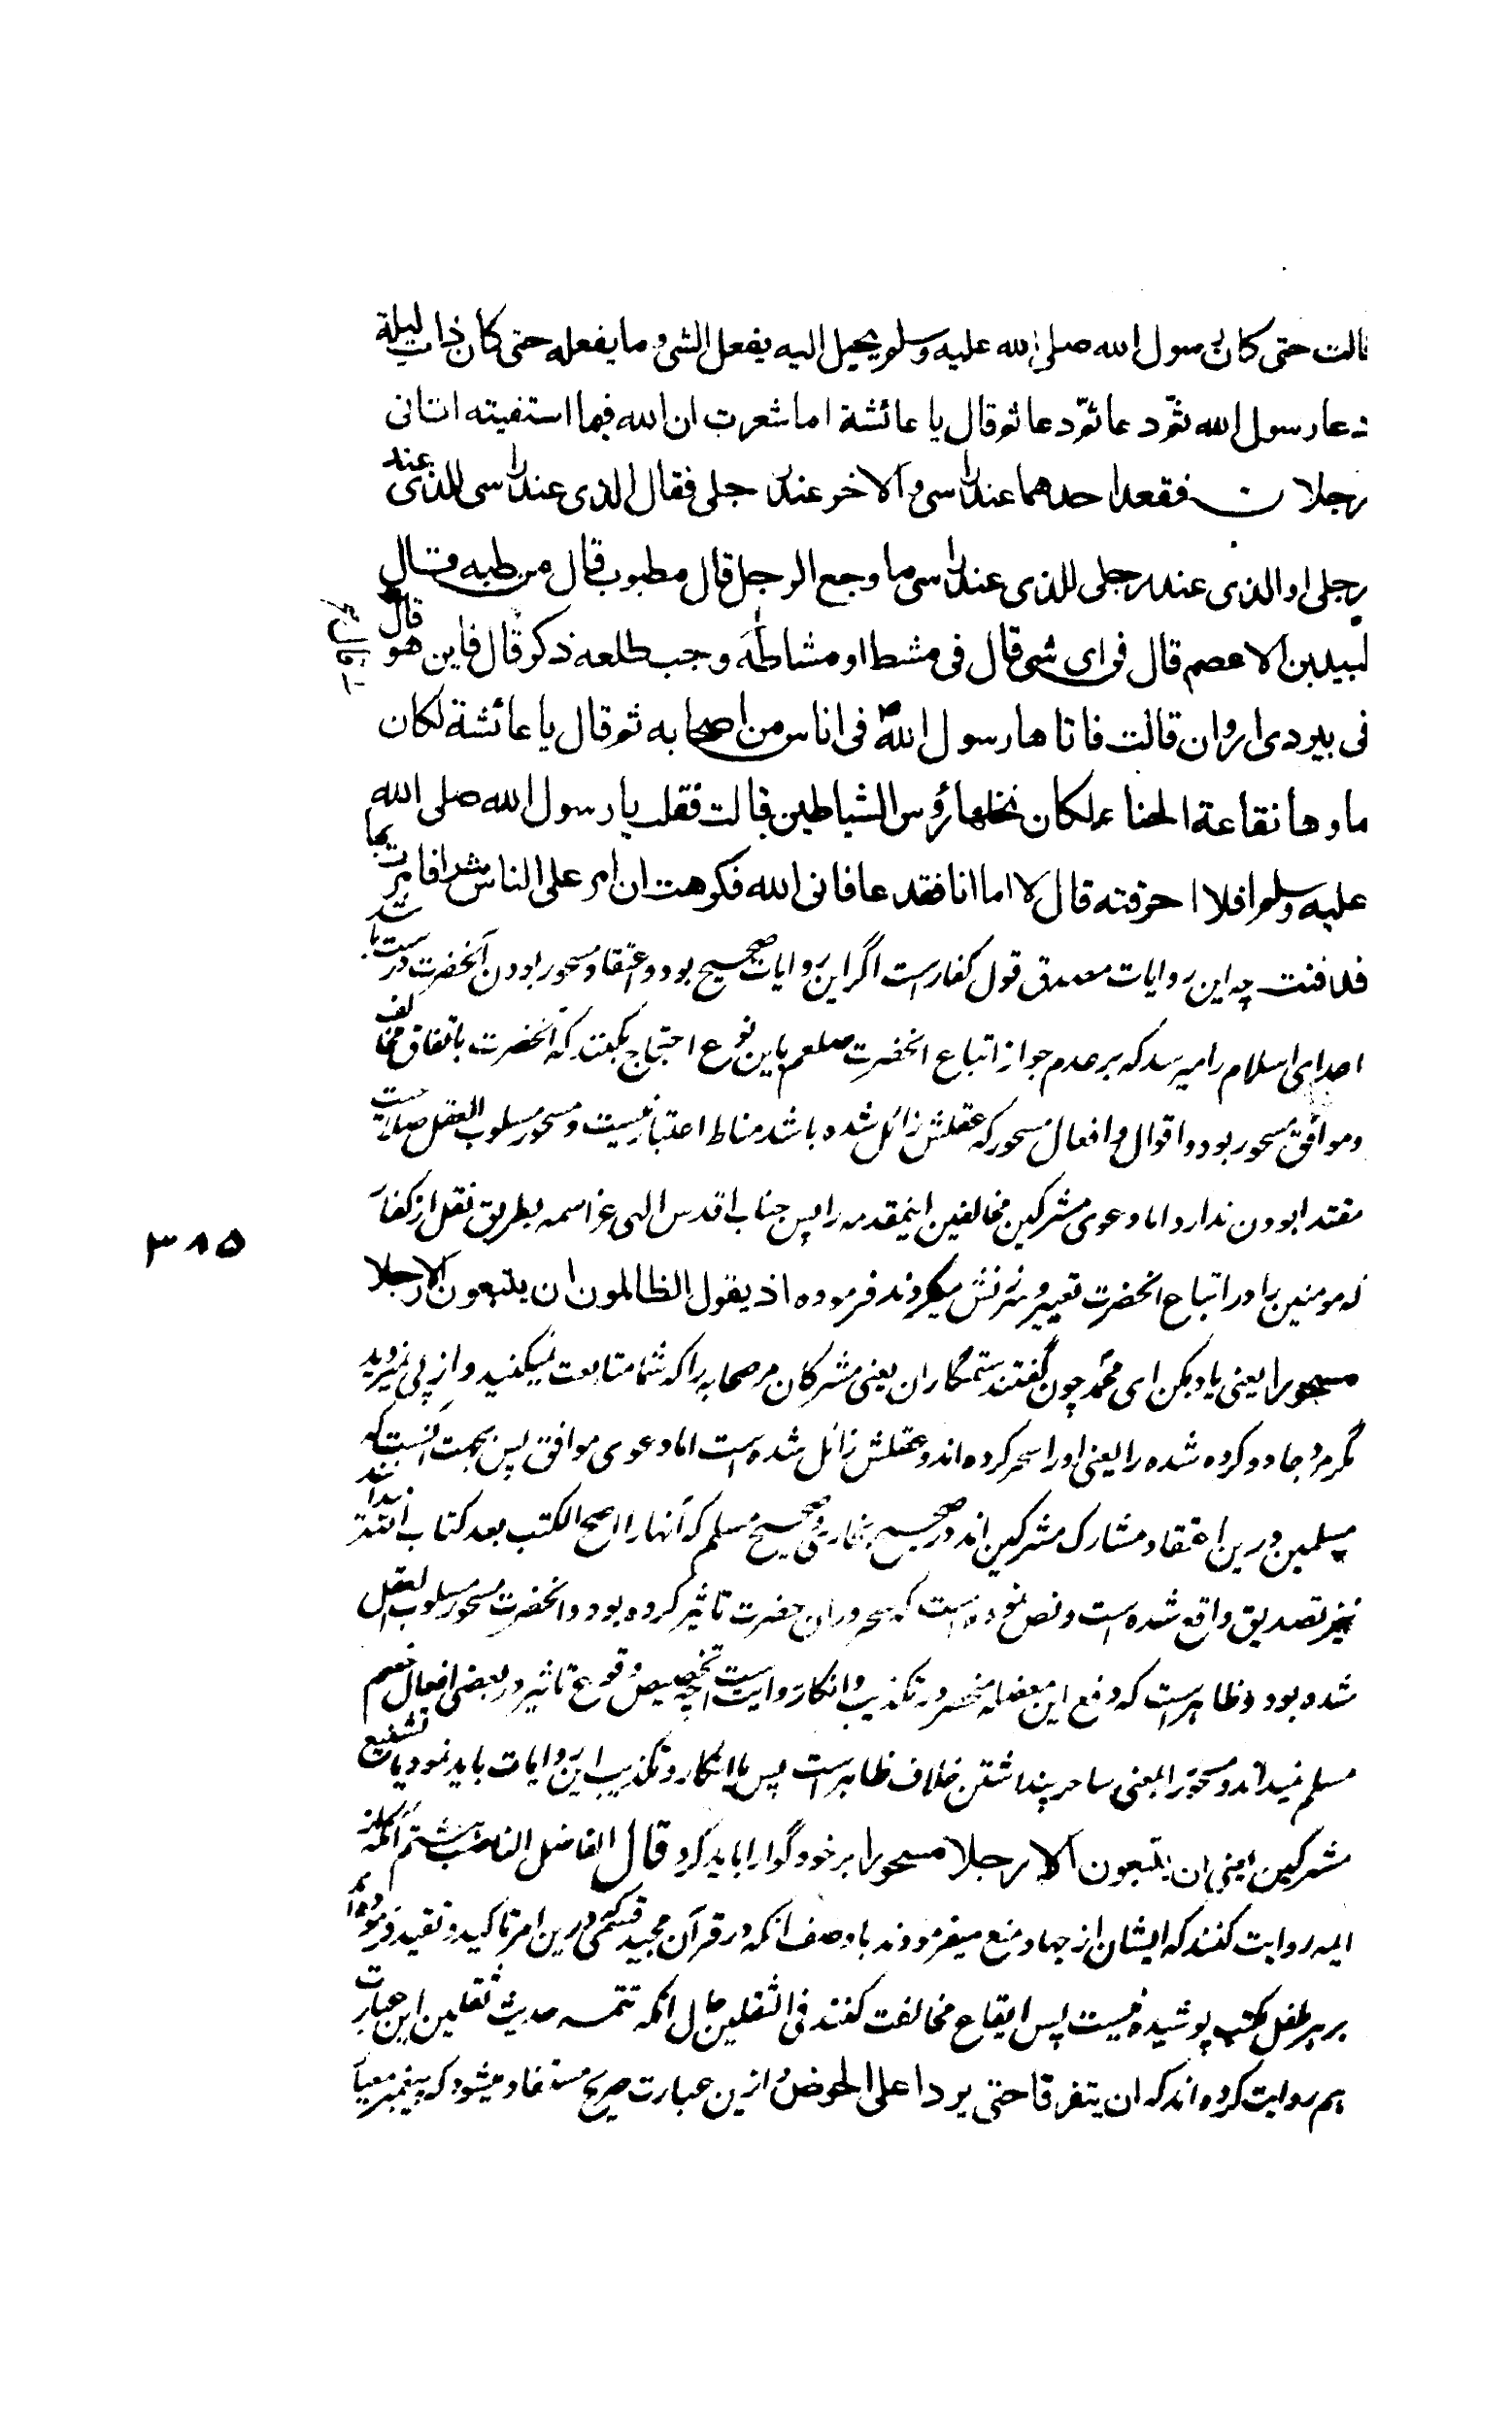 قالت حتى كان رسول الله صلى الله عليه وسلم يخيل اليه يفعل الشي وما يفعله حتى كان ذات ليلة
دعا رسول الله ثم دعا ثم دعا ثم قال يا عائشة اما شعرت ان الله فيما استفيته اتانى
رجلان فقعد احدهما عند راسى والاخر عند رجلى فقال الذى عند راسى للذى عند
رجلى او الذى عند رجلى للذى عند راسى ما وجع الرجل قال مطبوب قال من طبه قال
لبيد بن الاعصم قال فى اى شى قال فى مشط او مشاطة وجب طلعه ذكر قال فاين هو قال
فى بير ذى اروان قالت فاتاها رسول الله فى اناس من اصحابه ثم قال يا عائشة لكان
ماوها نقاعة الحناء ولكان نخلها رؤس الشياطين قالت فقلت يا رسول الله صلى الله
عليه وسلم افلا احرقته قال لا اما انا فقد عافانى الله فكرهت ان امر على الناس شرا فامرت بها
فدفنت چه این روایات مصدق قول کفار است اگر این روایات صحیح بود و اعتقاد مسحور بودن آنحضرت درست باشد
اعدای اسلام را میرسد که بر عدم جواز اتباع انحضرت صلعم باین نوع احتجاج بکنند که آنحضرت باتفاق مخالف
وموافق مسحور بود و اقوال و افعال مسحور که عقلش زائل شده باشد مناط اعتبار نیست و مسحور مسلوب العقل صلاحیت
مقتدا بودن ندارد اما دعوی مشرکین مخالفین اینمقدمه را پس جناب اقدس الهی عز اسمه بطریق نقل از کفار
که مومنین را در اتباع انحضرت تعییر و سرزنش میکردند فرموده اذ یقول الظالمون ان یتبعون الا رجلا
مسحورا یعنی یاد بکن ای محمد چون گفتند ستمگاران یعنی مشرکان مر صحابه را که شما متابعت نمیکنید و از پی نمیروید
مگر مرد جادو کرده شده را یعنی او را سحر کرده اند و عقلش زائل شده است اما دعوی موافق پس بجهت انست که
مسلمین درین اعتقاد مشارک مشرکین اند در صحیح بخاری و صحیح مسلم که آنها را اصح الکتب بعد کتاب الله میدانند
نیز تصدیق واقع شده است و نص نموده است که سحر در ان حضرت تاثیر کرده بود و انحضرت مسحور مسلوب العقل
شده بود و ظاهر است که دفع این معضله منحصر در تکذیب و انکار روایت است تخصیص وقوع تاثیر در بعضی افعال خصم
مسلم نمیداند و مسحور را بمعنی ساحر پنداشتن خلاف ظاهر است پس یا انکار و تکذیب این روایات باید نمود یا تشنیع
مشرکین اعنی ان یتبعون الا رجلا مسحورا بر خود گوارا باید کرد قال الفاضل الناصب هشتم آنکه از
ایمه روایت کنند که ایشان از جهاد منع میفرمودند با وصف انکه در قرآن مجید قسمی که درین امر تاکید و تقید فرموده اند
بر هر طفل مکتب پوشیده نیست پس ایقاع مخالفت کنند فی الثقلین حال انکه تتمه حدیث ثقلین این عبارت
هم روایت کرده اند که ان یتفرقا حتى یردا على الحوض و ازین عبارت صریح مستفاد میشود که پیغمبر معیار
۳۸۵